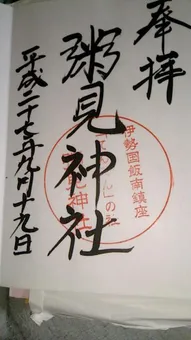 奉拝
伊勢国飯南鎮座
粥見神社
平成二十七年九月十九日